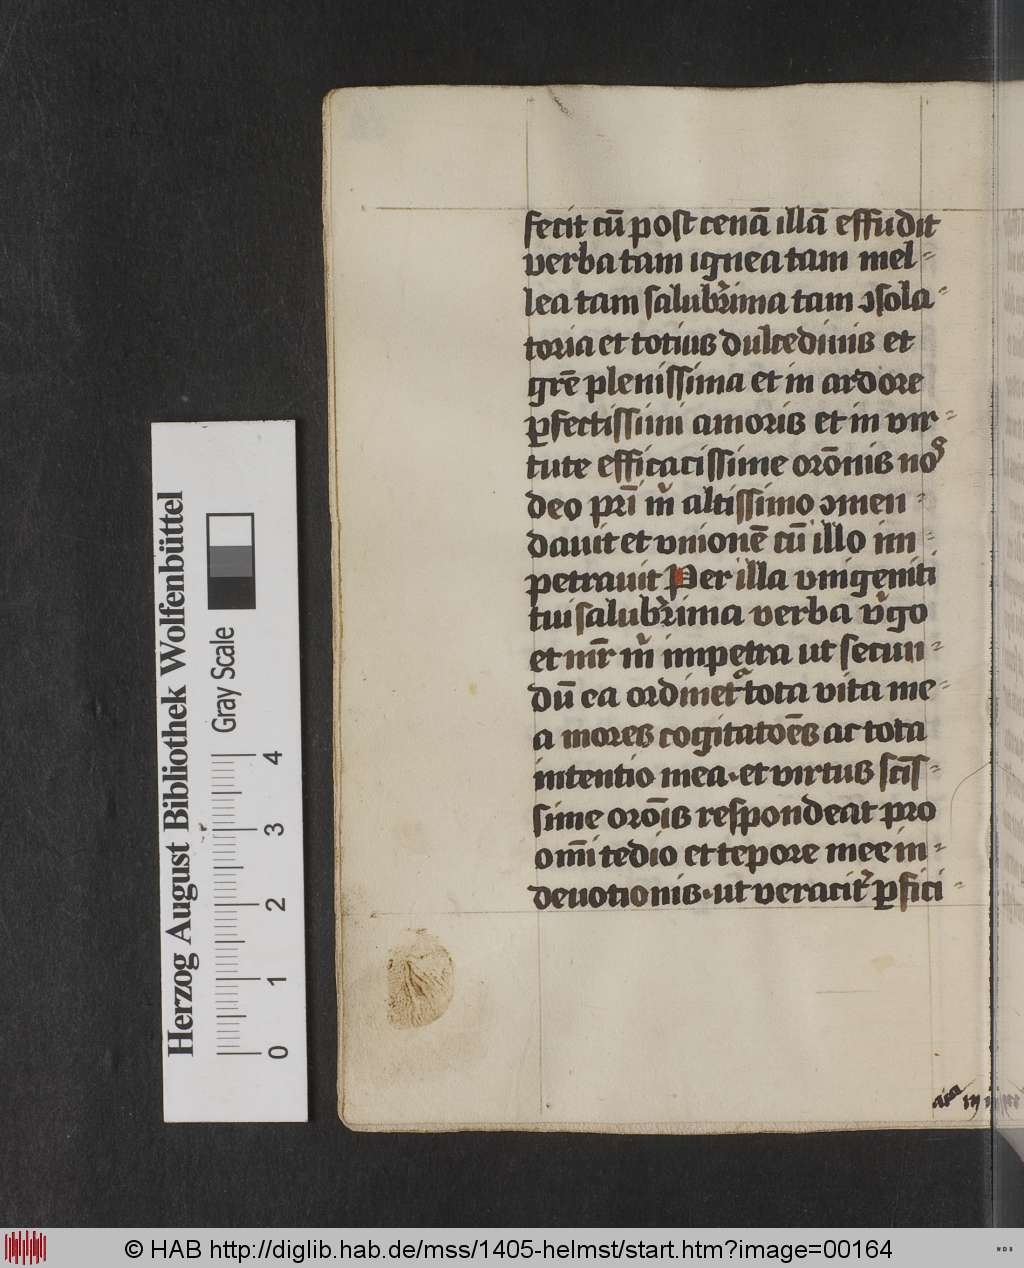 fecit cū post cenā illā effudit
verba tam ignea tam mel⸗
lea tam salubͬima tam ↄsola⸗
toria et totius dulcedinis et
grē plenissima et in ardore
ꝑfectissimi amoris et in vir⸗
tute efficacissime orōnis nos
deo prī mͥ altissimo ↄmen⸗
dauit et vnionē cū illo im⸗
petrauit Per illa vnigeniti
tui salubͬima verba vͥgo
et mr̄ mͥ impetra ut secun⸗
dū ea ordinetᷣ tota vita me⸗
a mores cogitatoēs ac tota
intentio mea·et virtus sctīs⸗
sime orōīs respondeat pro
om̄i tedio et tepore mee in⸗
deuotionis·ut veracitͬ ꝑfici⸗
Herzog August Bibliothek Wolfenbüttel
Gray Scale
0 1 2 3 4
© HAB http://diglib.hab.de/mss/1405-helmst/start.htm?image=00164